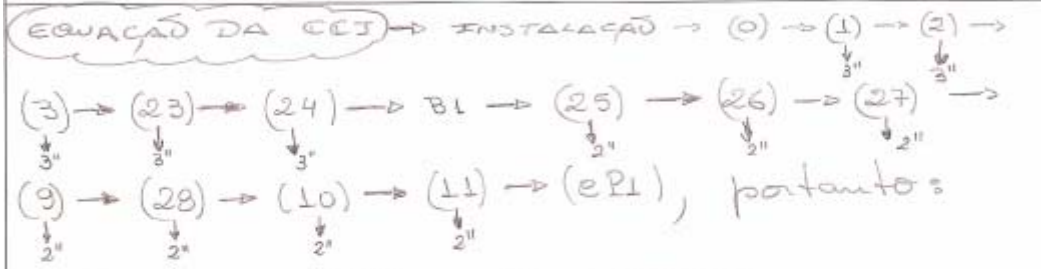 EQUAÇÃO DA CCI → INSTALAÇÃO → (0) → (1) → (2) →
3" 3"
(3) → (23) → (24) → B1 → (25) → (26) → (27) →
3" 3" 3" 2" 2" 2"
(9) → (28) → (10) → (11) → (eP1), portanto:
2" 2" 2" 2"